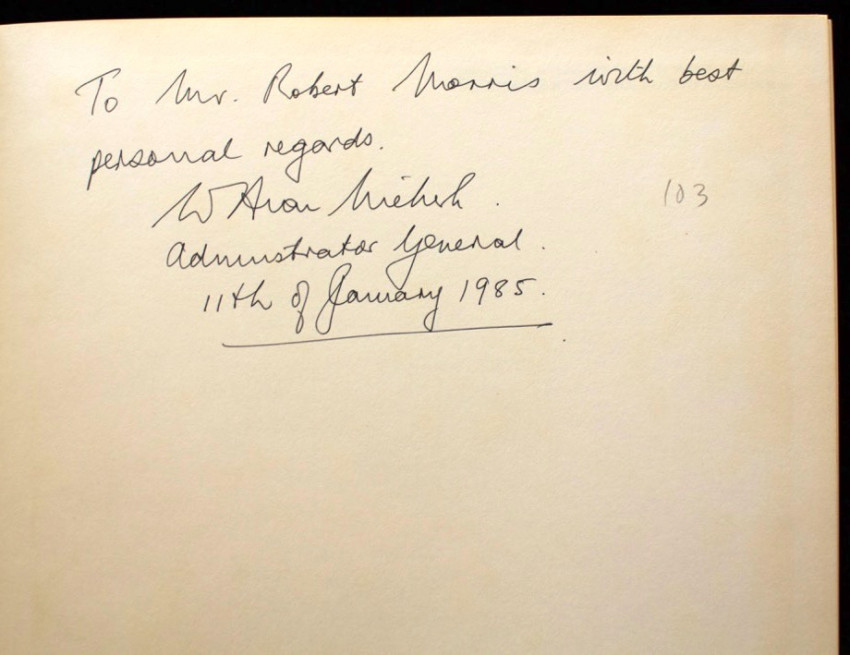 To Mr. Robert Morris with best
personal regards.
W A van Niekerk.
103
Administrator General.
11th of January 1985.